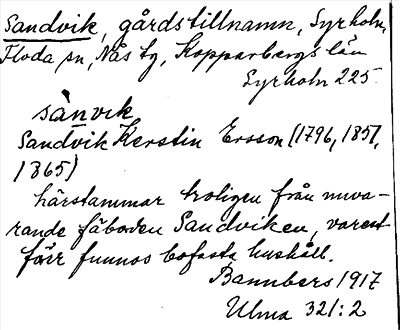 Sandvik, gårdstillnamn, Syrholn,
Floda sn, Nås tg, Kopparbergs län
Syrholn 225.
sànvik
Sandvik Kerstin Ersson (1796, 1851,
1865)
härstammar troligen från nuva-
rande fäboden Sandviken, varest
förr funnos bofasta hushåll.
Bannbers 1917
Ulma 321:2